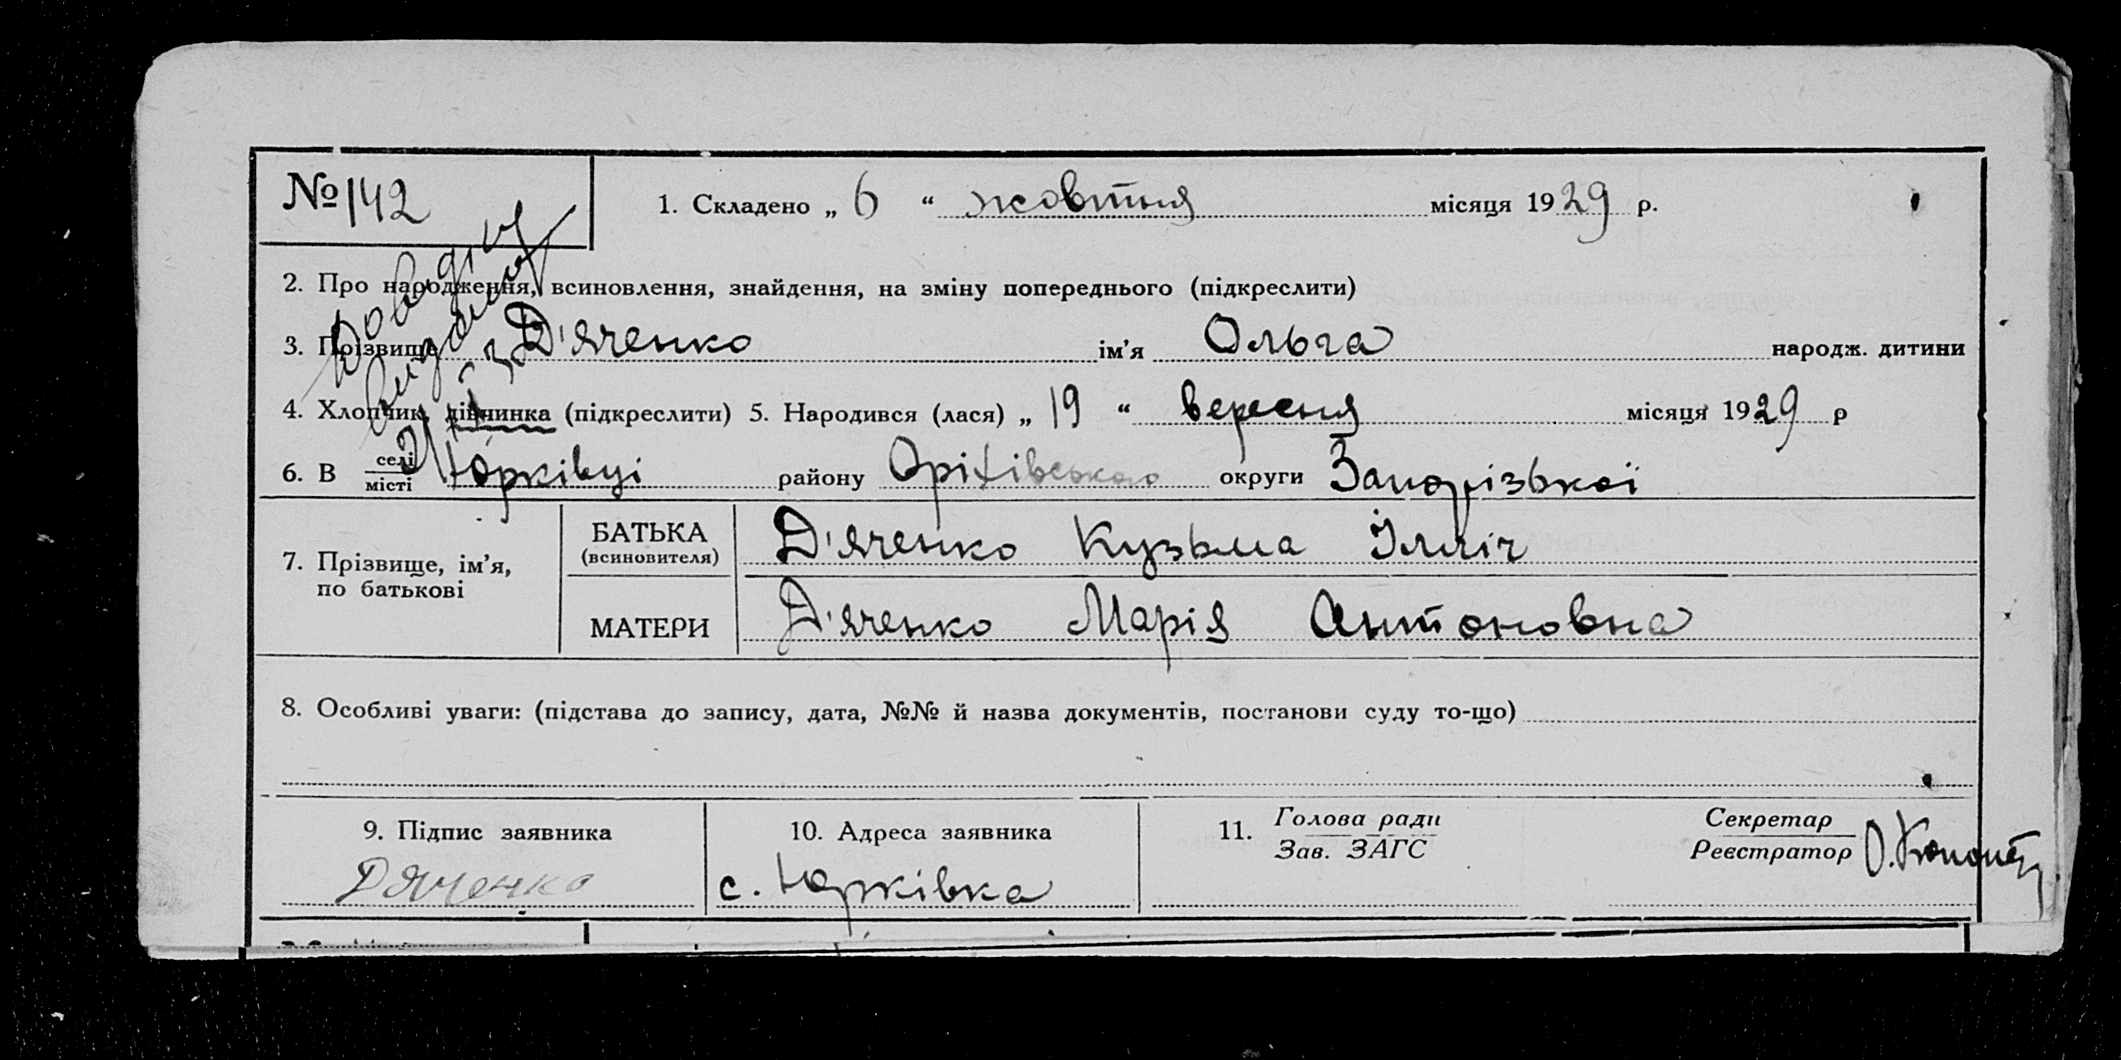 № 142
1. Складено „ 6 “ жовтня місяця 1929 р.
Довідку
видано
2. Про народження, всиновлення, знайдення, на зміну попереднього (підкреслити)
3. Прізвище Д'яченко ім’я Ольга народж. дитини
4. Хлопчик, дівчинка (підкреслити) 5. Народився (лася) „ 19 “ вересня місяця 1929 р
6. В селі місті Юрківці району Оріхівського округи Запорізької
7. Прізвище, ім’я, по батькові
БАТЬКА (всиновителя) Д'яченко Кузьма Ілліч
МАТЕРИ Д'яченко Марія Антоновна
8. Особливі уваги: (підстава до запису, дата, №№ й назва документів, постанови суду то-що)
9. Підпис заявника
Дяченко
10. Адреса заявника
с. Юрківка
11. Голова ради
Зав. ЗАГС
Секретар
Реєстратор